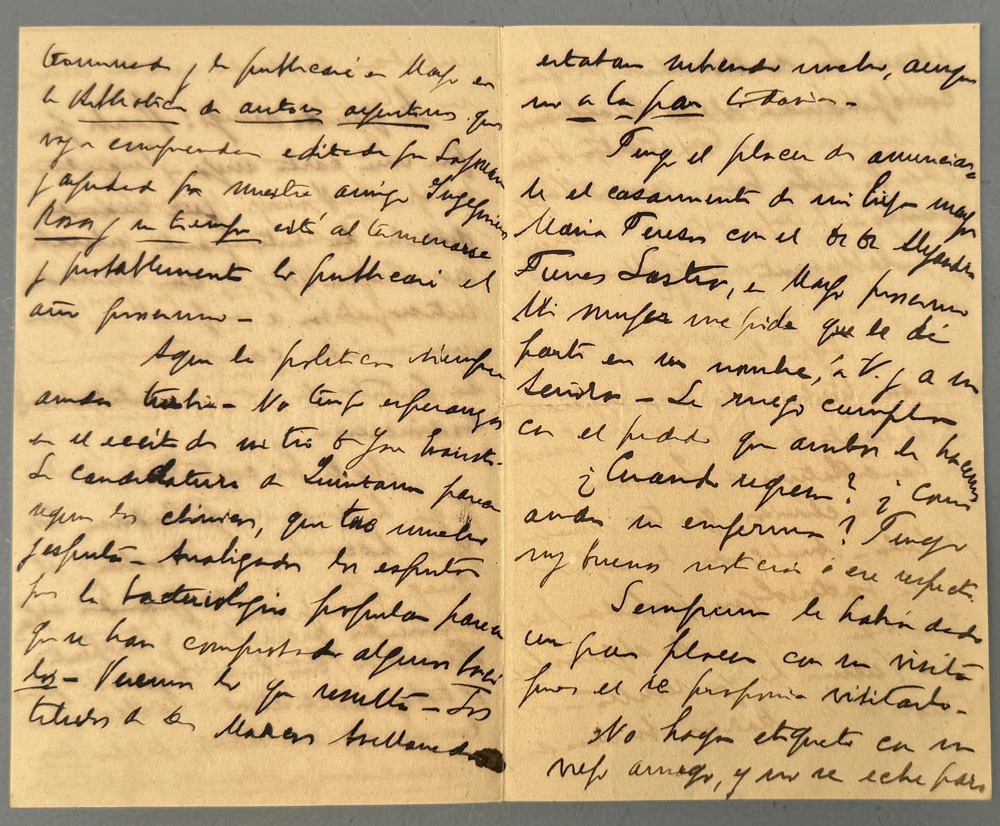 terminada y la publicaré en Mayo en
la Biblioteca de autores argentinos que
voy a emprender editada por Lajouane
y ayudado por nuestro amigo Ingegnieros
Rosas y su tiempo está al terminarse
y probablemente lo publicaré el
año proximo –
Aquí la politica siempre
anda turbia – No tengo esperanzas
en el exito de mi tio
La candidatura de Quintana parece
segun los clinicos, que tose mucho
y esputa – Analizados los esputos
por la bacteriologia popular parece
que se han comprobado algunos baci
los – Veremos lo que resulta – Los
titulos de Marcos Avellaneda
estaban subiendo mucho, aunque
no a la par todavia –
Tengo el placer de anunciar
le el casamiento de mi hija mayor
Maria Teresa con el Dr Dr Alejandro
Funes Lastra, en Mayo proximo
Mi mujer me pide que le dé
parte en su nombre, á V. y a su
Señora – Le ruego cumpla
con el pedido que ambos le hacemos
¿Cuando regresa? ¿Como
anda su enferma? Tengo
muy buenas noticias á ese respecto.
Semprum le habrá dado
un gran placer con su visita
pues el se proponia visitarlo –
No haga etiqueta con su
viejo amigo, y no se eche para